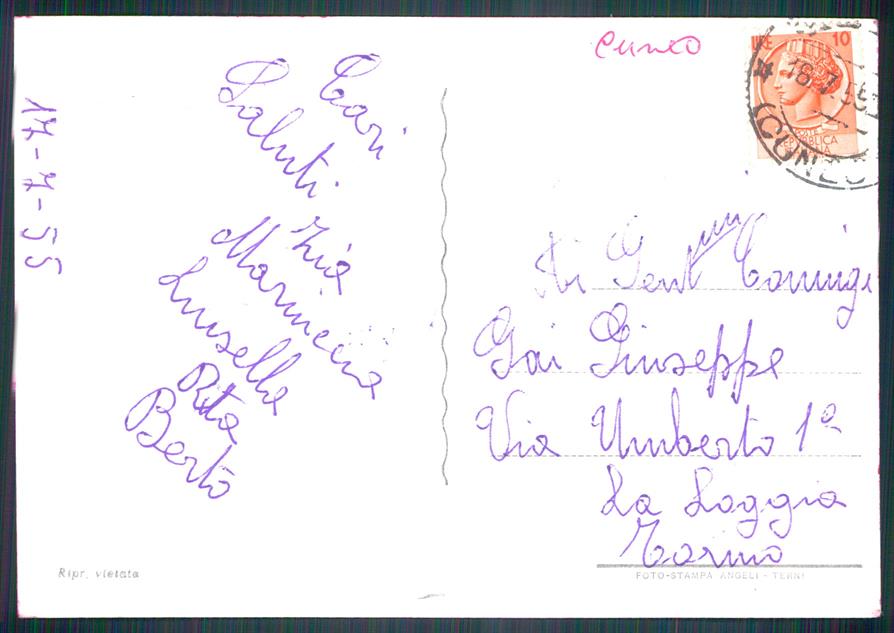 17-7-55
Cari
Saluti
Zia
Mariuccia
Luisella
Rita
Berto
Ripr. vietata
cuneo
LIRE 10
POSTE
REPUBBLICA
18.7.55
(CUNEO
Ai Gent mi Coniugi
Gai Giuseppe
Via Umberto 1º
La Loggia
Torino
FOTO-STAMPA ANGELI - TERNI